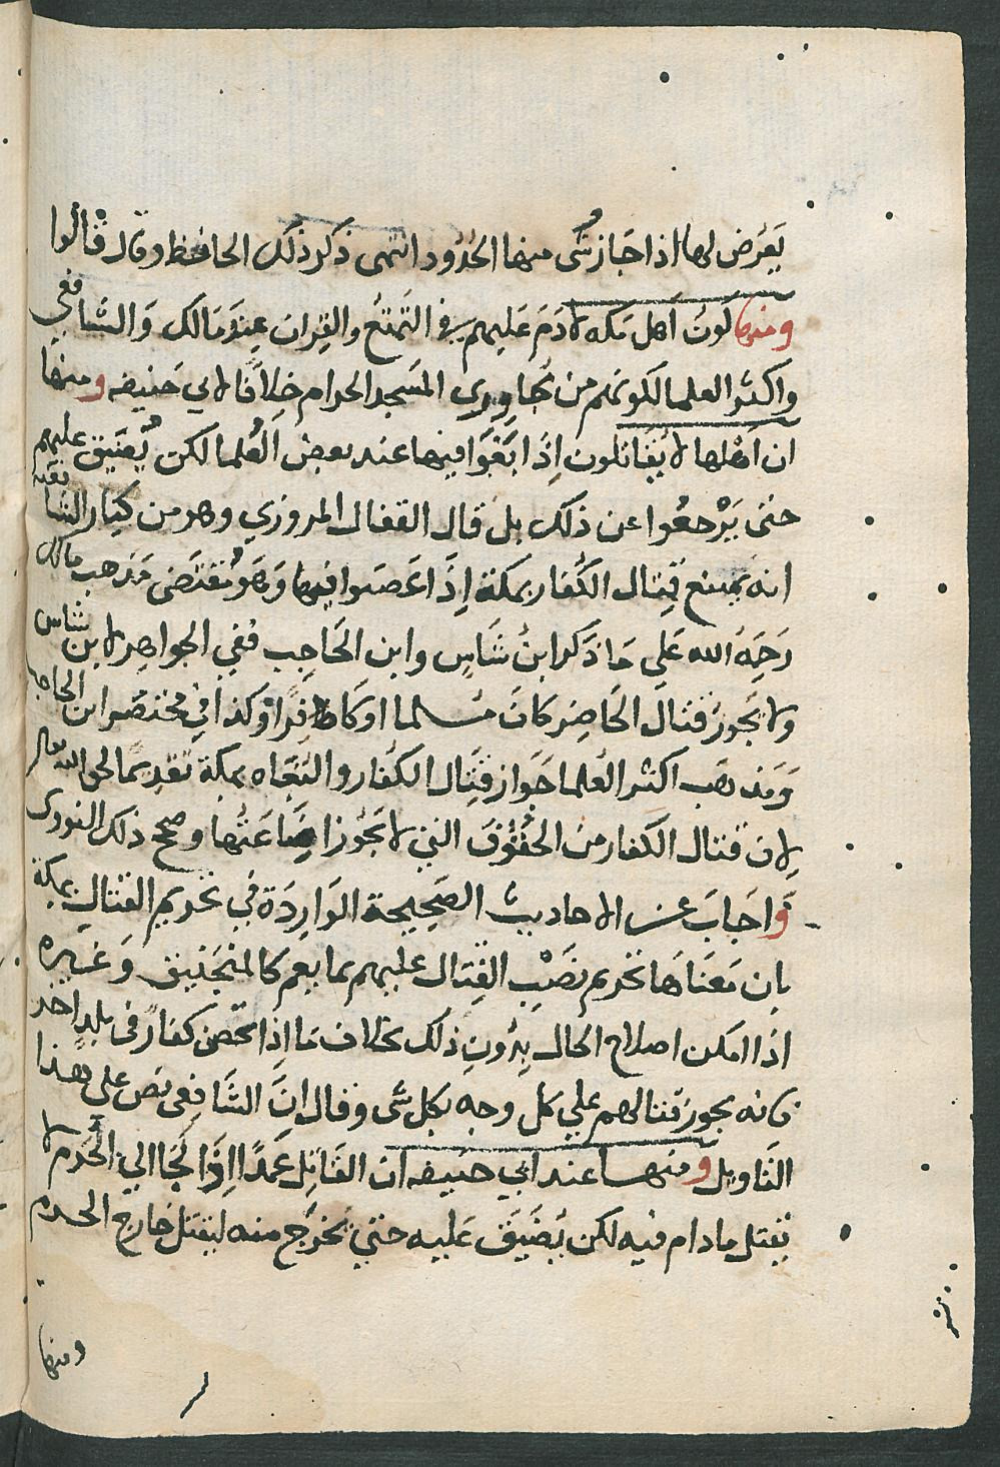 يَعْرُض لها اذا جَاز شُى منها الحُدُود انتهى ذكر ذلك الحافظ وقال قالوا
ومنها كونُ اَهل مَكه لا دَمَ عَليهم في التَمتعُ والقِران عِند مَالك وَالشَافعي
واكثر العلما لكونهم من حُجاوِري المسَجد الحرام خِلاَفًا لابي حَنيفه ومنها
ان اَهْلها لا يُقاتلون اِذَا بَغَوَا فيها عند بعض العُلما لكن يُضَيق عليهم
حتى يَرْجعُوا عن ذلك بل قال القفال المروزي وهو من كِبَار الشافعية
انه يمتنع قِتال الكُفار بمكة اِذَا عَصَوا فيها وَهَو مُقتَضى مَذهب مالك
رَحمَهُ الله عَلى مَا ذَكر ابنُ شَاسٍ وابن الحَاجِب ففي الجواهِر لابن شاس
ولا يَجوز قتال الحَاضِر كانَ مُسلما او كافرًا وكذا في مختصَر ابن الحاجب
وَمَذهَب اكثر العُلما جَواز قتال الكفار والبُغَاه بمكة تقديمًا لحق الله تعالى
لاِن قتال الكفار من الحُقُوقَ التي لا يَجُوز اِضَاعَتُها وصحح ذلك النووي
وَاجَابَ عن الاحاديث الصَحِيحة الوَارِدَة في تحريم القتال بمكة
بان مَعنَاهَا تحرِيم نصَبْ القِتال عليهم بما يعم كالمنجَنيق وَغيره
اذا امكن اصلاح الحال بِدُونِ ذلك بخلاف مَا اِذا تحَصن كفارً في بلدٍ اخر
فانه يجوز قتالهم على كل وجه بكل شى وقال اِنَّ الشَافِعى نصَ على هذا
التَاويل ومنها عند ابي حنيفه ان القَاتِل عَمدًا اِذَا لجَاالى الحَرم لا
يقتل ما دام فيه لكن يُضَيَق عَليه حتى يخرَج منه ليقتل خارج الحرم
ومنها